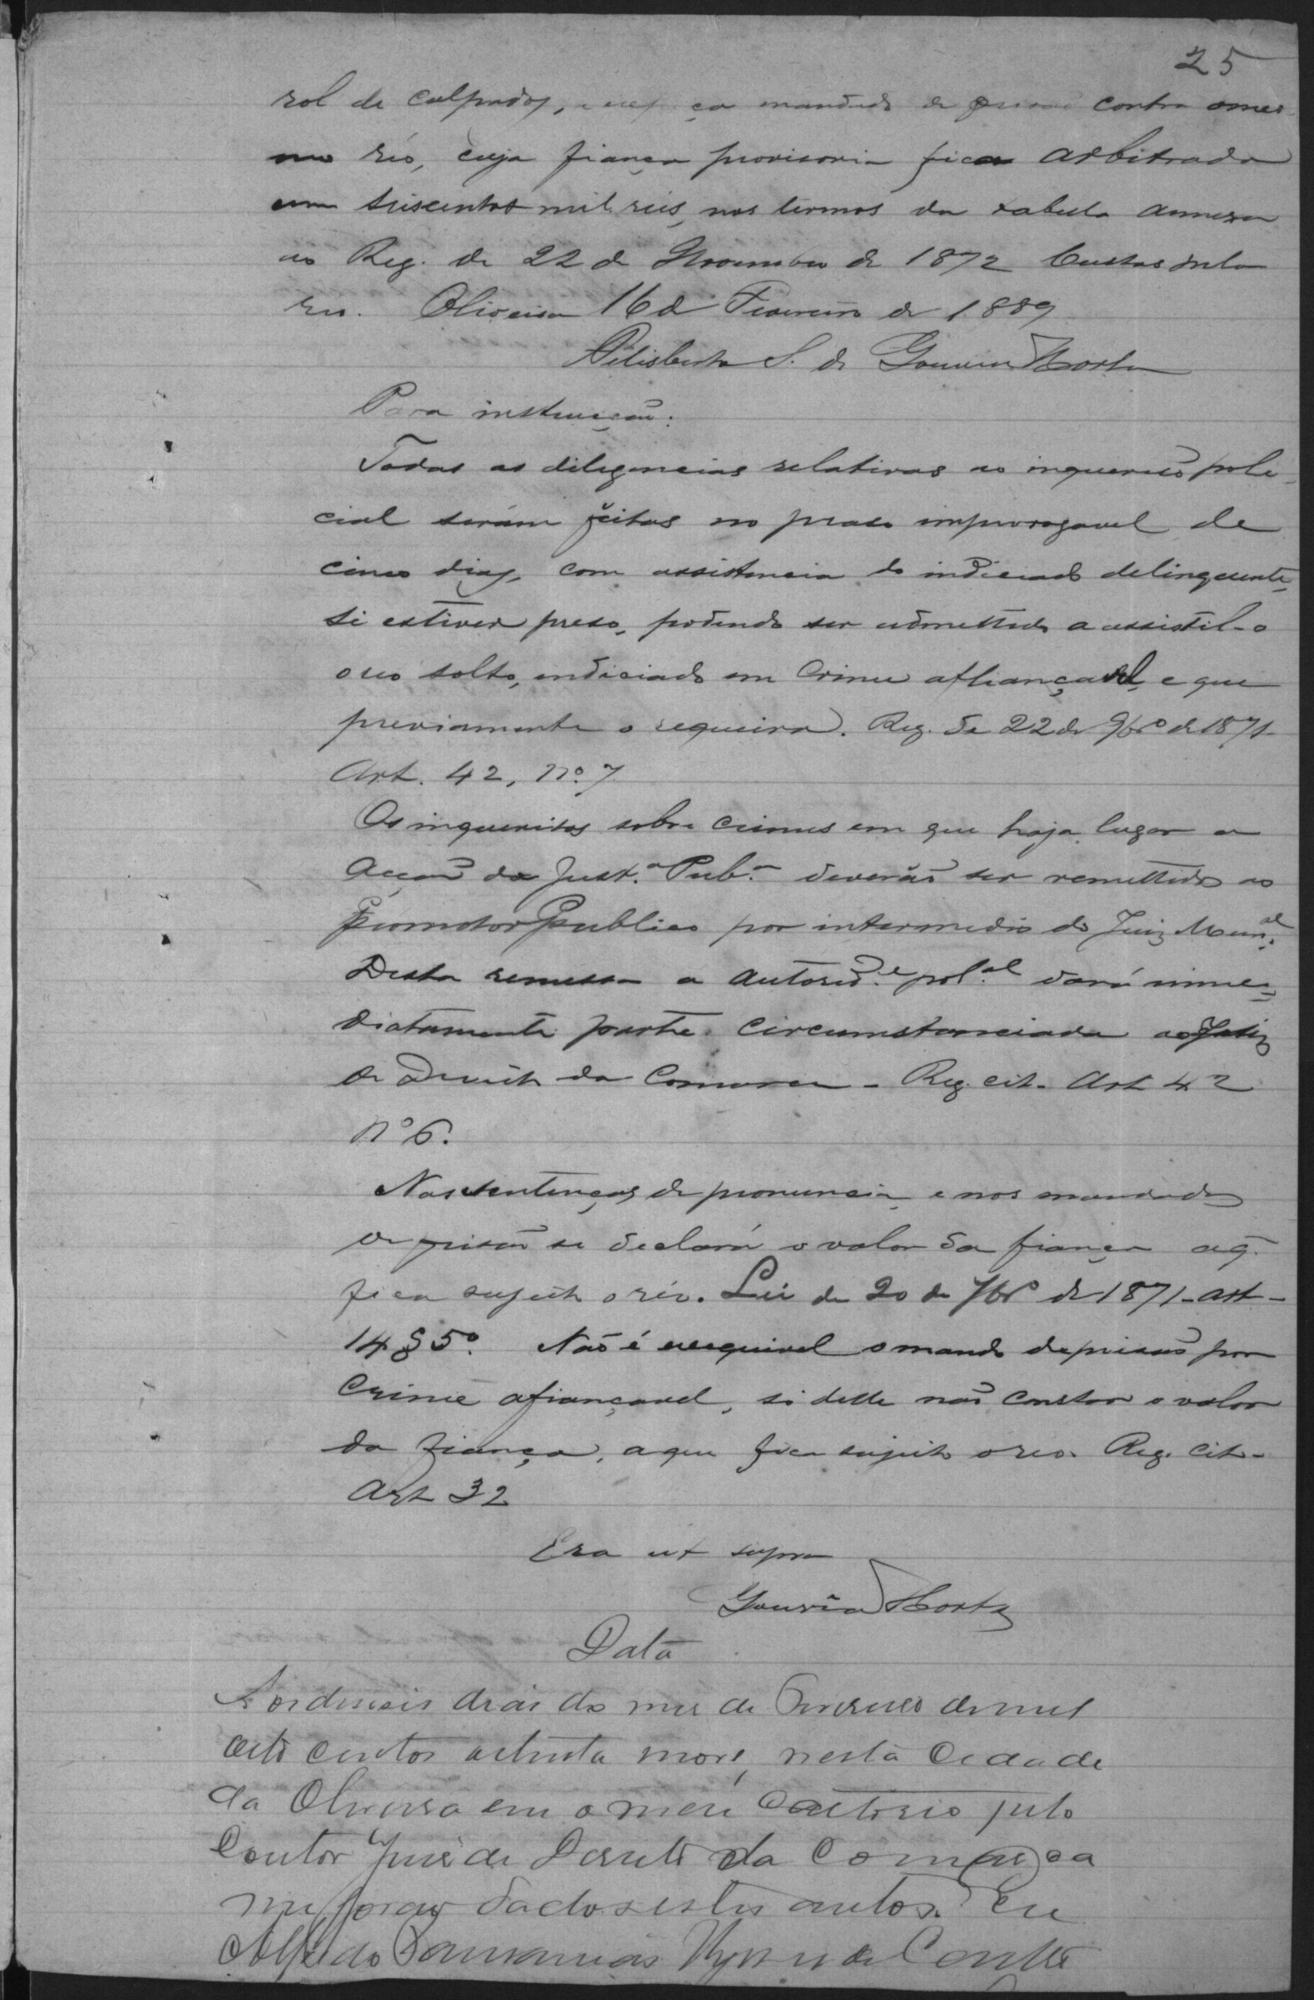 25
rol de culpados, mandado de contra o mes
mo réo, cuja fiança provisoria fica arbitrada
em tresentos mil reis, nos termos da tabella annexa
ao Reg. de 22 de Novembro de 1872 Custas pelo
reu. Oliveira 16 de Fevereiro de 1889
Felisberto S. de Gouveia Horta
Para instrucção:
Todas as diligencias relativas ao inquerito poli-
cial serám feitas no praso improrogavel de
cinco dias, com assistencia do indiciado delinquente,
si estiver preso, podendo ser admettido a assistil-o
o reo solto, indiciado em crime affiançavel, e que
previamente o requeira. Reg. de 22 de 9bro de 1871
Art. 42, Nº 7
Os inqueritos sobre crimes em que haja lugar a
Acção da Just.a Pub.a deverão ser remettidos ao
Promotor Publico por intermedio do Juiz Mun.al
Desta remessa a autorid.e pol.al dará imme-
diatamente parte circumstanciada ao Juiz
de Direito da Comarca - Reg. cit. Art 42
Nº 6.
Nas sentenças de pronuncia, e nos mandados
de prisão se declara o valor da fiança a q.
fica sujeito o réo. Lei de 20 de 7bro de 1871 - art -
14 § 5º. Não é exequivel o mando de prisão por
crime afiançavel, si delle não constar o valor
da fiança, a que fica sujeito o reo. Reg. cit -
Art 32
Era ut supra
Gouveia Horta
Data
Aos deseseis dias do mes de Fevereiro de mil
oito centos oitenta nove, nesta Cidade
da Oliveira em o meu Cartorio pelo
Doutor Juis de Dereito da Comarca
me forão dados estes autos. Eu
Alfredo de